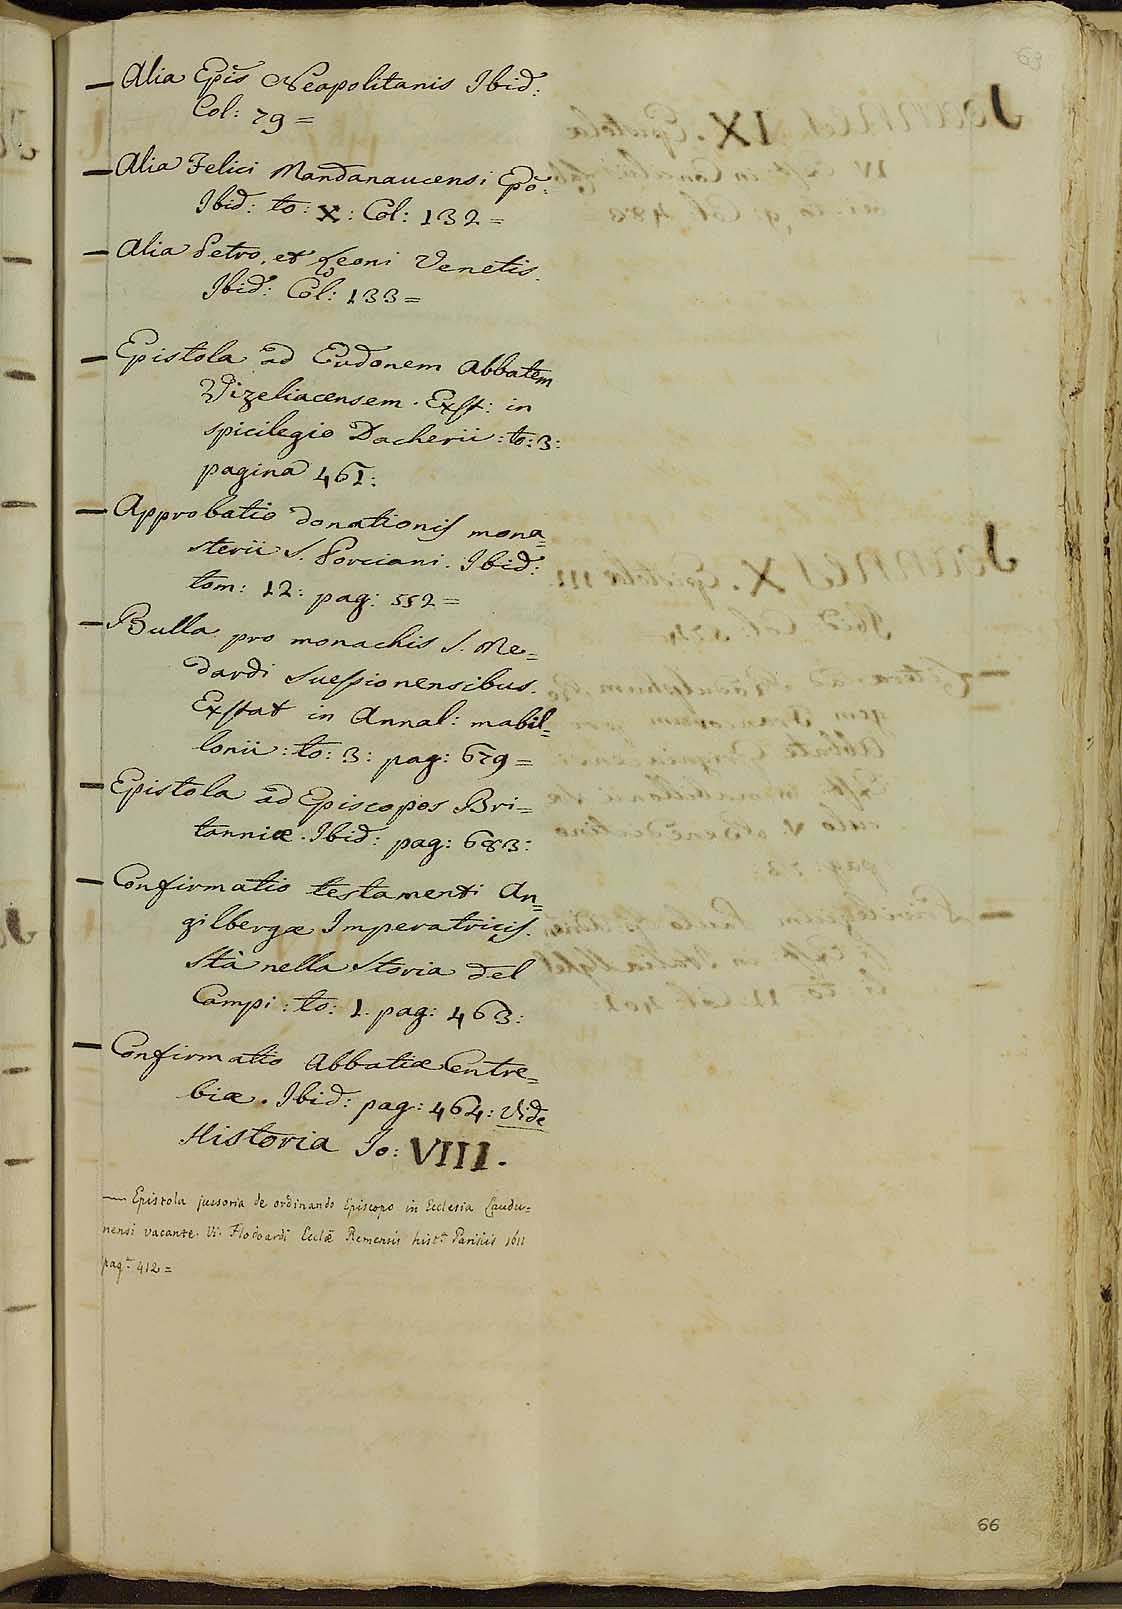 63
— Alia Ep̃is Neapolitanis Ibid:
Col: 79 =
— Alia Felici Mandanaucensi Ep̃o:
Ibid: to: X: Col: 132 =
— Alia Petro, et Leoni Venetis.
Ibid: Col: 133 =
— Epistola ad Eudonem Abbatem
Vizeliacensem. Exst: in
spicilegio Dacherii: to: 3:
pagina 461:
— Approbatio donationis mona=
sterii S. Porciani. Ibid:
tom: 12: pag: 552 =
— Bulla pro monachis S. Me=
dardi Suessionensibus.
Exstat in Annal: mabil=
lonii: to: 3: pag: 679 =
— Epistola ad Episcopos Bri=
tanniæ. Ibid: pag: 683:
— Confirmatio testamenti An=
gilbergæ Imperatricis.
Stà nella Storia del
Campi: to: 1. pag: 463:
— Confirmatio Abbatiæ Centre=
biæ. Ibid: pag: 464: Vide
Historia Jo: VIII.
— Epistola jussoria de ordinando Episcopo in Ecclesia Laudu=
nensi vacante. Vi. Flodoardi Ecclæ Remensis hist. Parisiis 1611
pag. 412 =
66